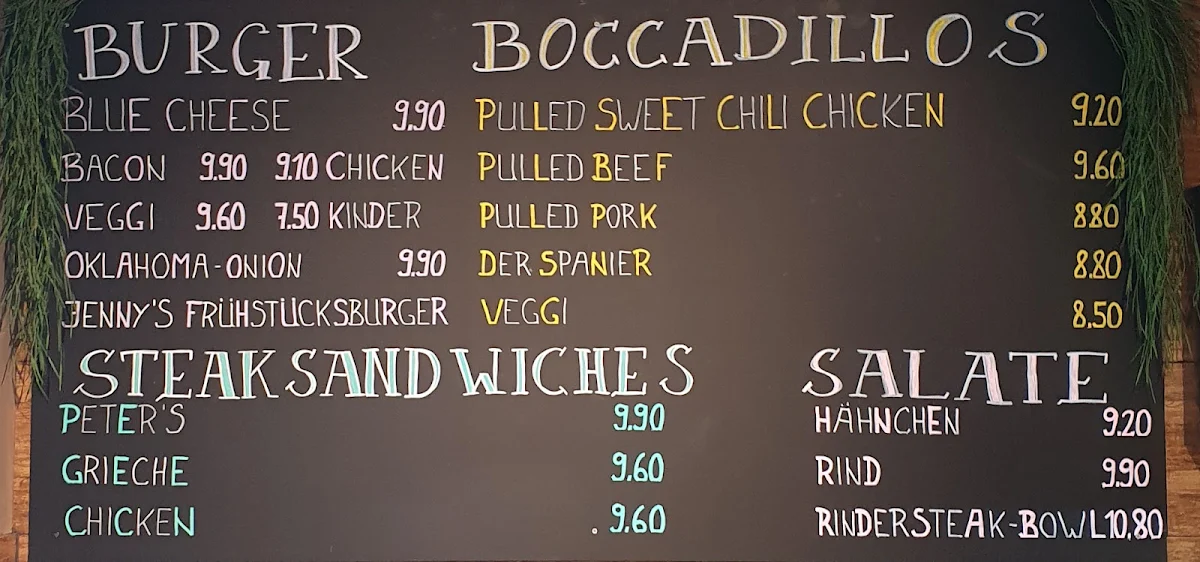 BURGER
BLUE CHEESE 9.90
BACON 9.90 9.10 CHICKEN
VEGGI 9.60 7.50 KINDER
OKLAHOMA-ONION 9.90
JENNY'S FRÜHSTÜCKSBURGER
BOCCADILLOS
PULLED SWEET CHILI CHICKEN 9.20
PULLED BEEF 9.60
PULLED PORK 8.80
DER SPANIER 8.80
VEGGI 8.50
STEAKSANDWICHES
PETER'S 9.90
GRIECHE 9.60
CHICKEN 9.60
SALATE
HÄHNCHEN 9.20
RIND 9.90
RINDERSTEAK-BOWL 10.80